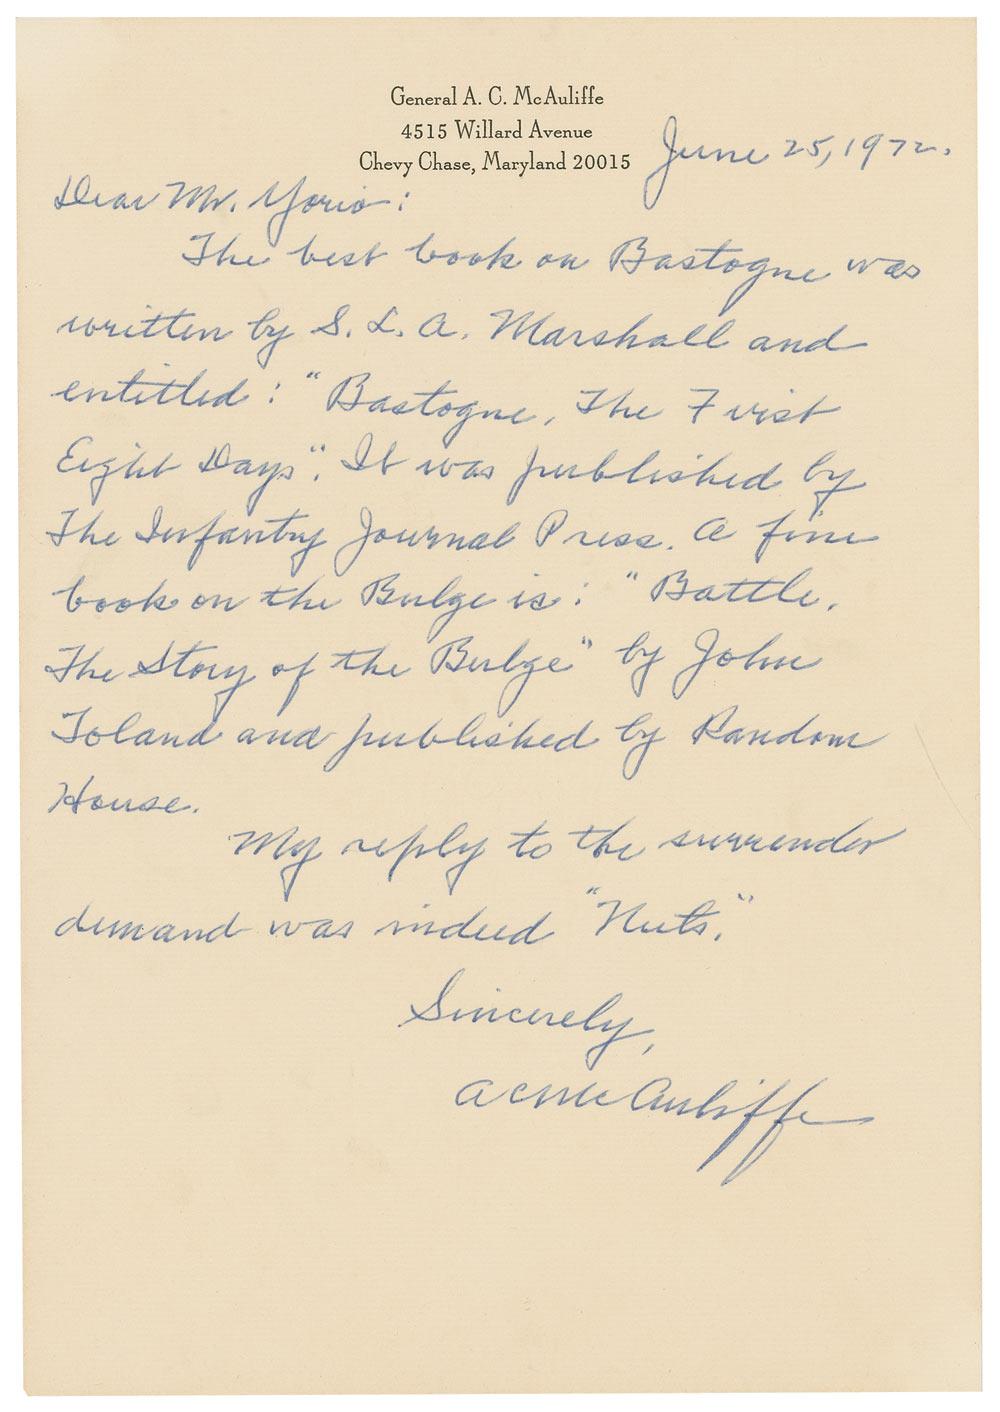 General A. C. McAuliffe
4515 Willard Avenue
Chevy Chase, Maryland 20015
June 25, 1972.
Dear Mr. Yorio:
The best book on Bastogne was
written by S. L. A. Marshall and
entitled: "Bastogne, The First
Eight Days". It was published by
The Infantry Journal Press. A fine
book on the Bulge is: "Battle,
The Story of the Bulge" by John
Toland and published by Random
House.
My reply to the surrender
demand was indeed "Nuts".
Sincerely,
ACMcAuliffe